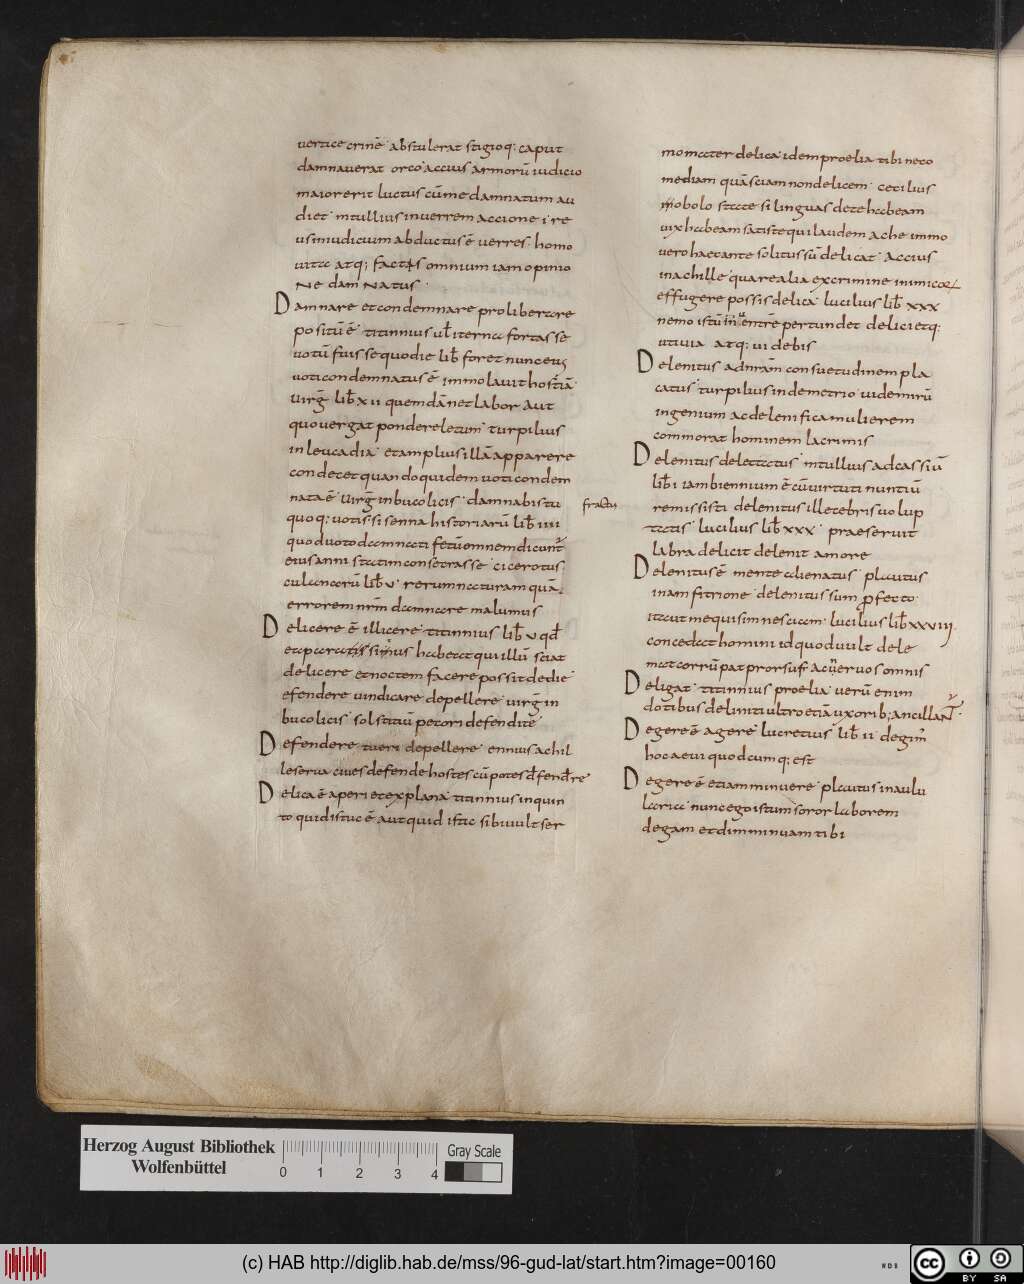 vertice crinē abstulerat stigioq; caput
damnauerat orco accius armorū iudicio
maiorerit luctus cū me damnatum au
diet m tullius inuerrem accione i re
us iniudicium abductus ē uerres homo
uita atq; factis omnium iam opinio
ne damnatus
Damnare et condemnare pro liberare
positū ē titinnius ul iterna fortasse
uotū fuisse quodie lib foret nunc eius
uoti condemnatus ē immolauit hostiā
uirg lib xii quem dānet labor aut
quo uergat pondere letum turpilius
in leucadia etam plius illā apparere
condecet quando quidem uoti condem
nata ē uirg in bucolicis damnabis tu
quoq; uotis sisenna historiarū lib iiii
quo duoto damnati fetū omnem dicunt
eius anni statim consecrasse cicero tus
culanarū lib v rerum naturam quā
errorem nrm damnare malumus
Delicere ē illicere titinnius lib v qd
ea paratissimus habeat qui illū sciat
delicere et noctem facere possit dedie
efendere uindicare depellere uirg in
bucolicis solstitiū pecori defendite
Defendere tueri depellere ennius achil
leserua ciues defende hostes cū potes defendere
Delica ē aperi et explana titinnius in quin
to quid istuc ē aut quid istic sibi uult ser
fractus
mo mater delica idem proelia tibi neco
mediam quā sciam non delicem cecilius
in obolo statce si linguas dece habeam
uix habeam satis te qui laudem ache immo
uero haec ante solitus sū delicat accius
in achille qua re alia ex crimine inimicor
effugere possis delica lucilius lib xxx
nemo istū in uentrē pertundet delici etq;
ut iuia atq; uidebis
Delenitus ad nram consuetudinem pla
catus turpilius in demetrio uidemirū
ingenium ac delenifica mulierem
commorat hominem lacrimis
Delenitus delectatus m tullius ad cassiū
lib i iam biennium ē cū uirtuti nuntiū
remississti delenitus illecebris uolup
tatis lucilius lib xxx praeseruit
labra delicit delenit amore
Delenitus ē mente alienatus plautus
in amfitrione delenitus sum profecto
ita ut me qui sim nesciam lucilius lib xxviiij
concedat homini id quod uult dele
mat corrūpat prorsuf ac neruos omnis
Deligat titinnius proelia uerū enim
dotibus deliniti ultro etiā uxorib; ancillant
Degere ē agere lucretius lib ii degitur
hoc aeui quod cumq; est
Degere ē etiam minuere plautus in aulu
laria nunc ego istum soror laborem
degam et diminuam tibi
Herzog August Bibliothek
Wolfenbüttel
0 1 2 3 4
Gray Scale
(c) HAB http://diglib.hab.de/mss/96-gud-lat/start.htm?image=00160
WDB
CC BY SA